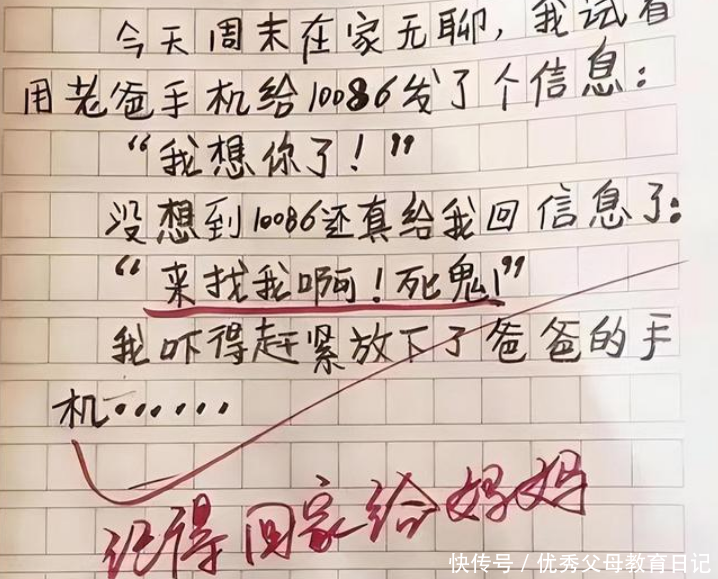 今天周末在家无聊,我试着
用老爸手机给10086发了个信息:
“我想你了!”
没想到10086还真给我回信息了:
“来找我啊!死鬼!”
我吓得赶紧放下了爸爸的手
机······
记得回家给妈妈
快传号/优秀父母教育日记